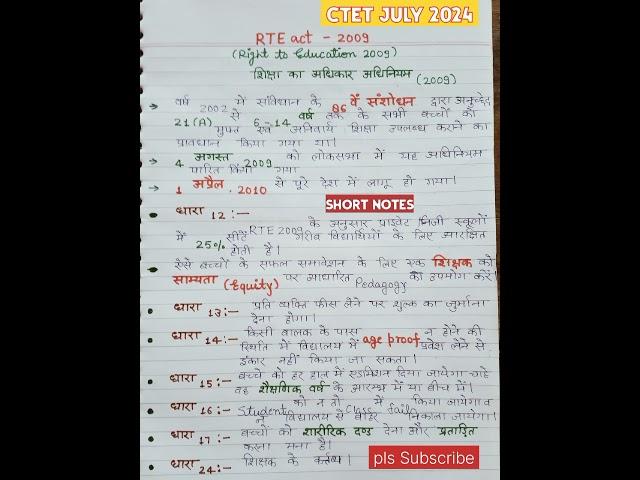 CTET JULY 2024
RTE act - 2009
(Right to Education 2009)
शिक्षा का अधिकार अधिनियम (2009)
→ वर्ष 2002 में संविधान के 86 वें संशोधन द्वारा अनुच्छेद
21(A) से 6-14 वर्ष तक के सभी बच्चों को
मुफ्त एवं अनिवार्य शिक्षा उपलब्ध कराने का
प्रावधान किया गया था।
→ 4 अगस्त, 2009 को लोकसभा में यह अधिनियम
पारित किया गया
→ 1 अप्रैल, 2010 से पूरे देश में लागू हो गया।
SHORT NOTES
• धारा 12:— RTE 2009 के अनुसार प्राइवेट निजी स्कूलों
में 25% सीटें गरीब विद्यार्थियों के लिए आरक्षित
होती है।
• ऐसे बच्चों के सफल समावेशन के लिए एक शिक्षक को
साम्यता (Equity) पर आधारित Pedagogy का उपयोग करें।
• धारा 13:— प्रति व्यक्ति फीस लेने पर शुल्क का जुर्माना
देना होगा।
• धारा 14:— किसी बालक के पास age proof न होने की
स्थिति में विद्यालय में प्रवेश लेने से
इंकार नहीं किया जा सकता।
• धारा 15:— बच्चे को हर हाल में एडमिशन दिया जायेगा चाहे
वह शैक्षणिक वर्ष के आरम्भ में या बीच में।
• धारा 16:— Student को न तो class में fail किया जायेगा व
न विद्यालय से बाहर निकाला जायेगा।
• धारा 17:— बच्चों को शारीरिक दण्ड देना और प्रताड़ित
करना मना है।
• धारा 24:— शिक्षक के कर्तव्य।
pls Subscribe